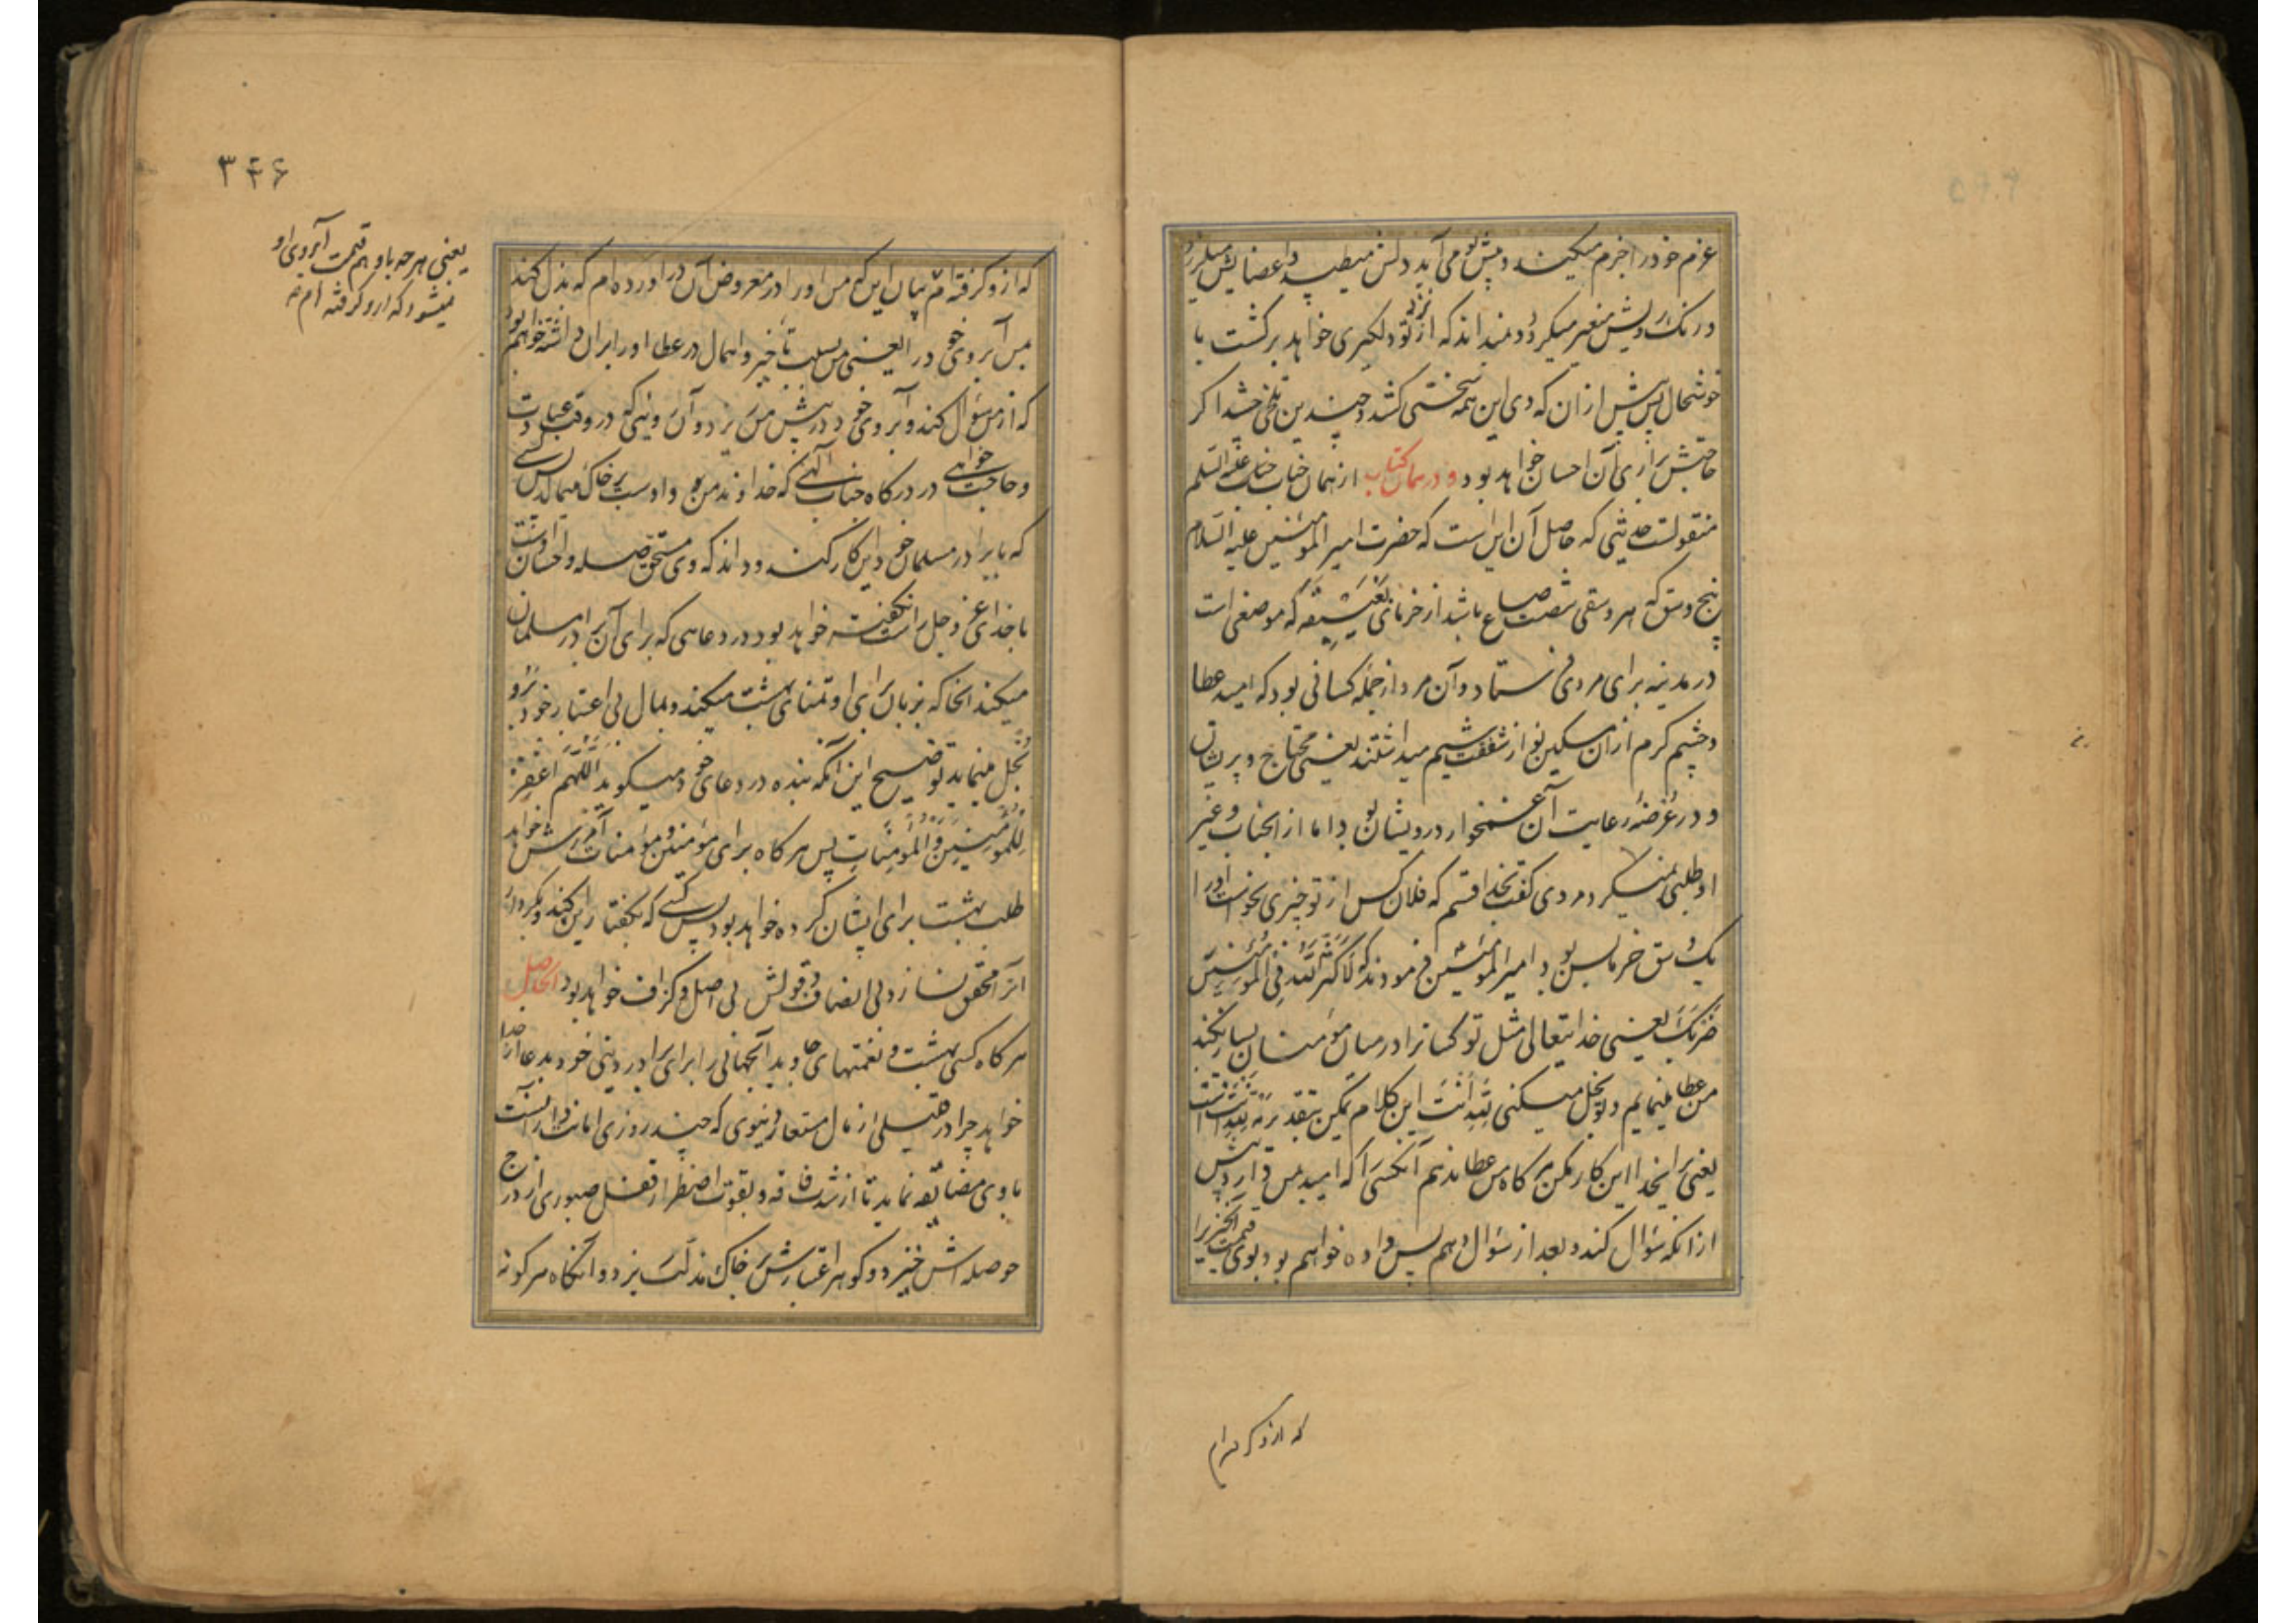 عزم خود را جزم میکند و پیش تو می آید دلش میطپد و اعضایش میلرزد
و رنگ رویش متغیر میگردد و نمیداند که از نزد تو بدلگیری خواهد برگشت یا
خوشحال پس پیش ازان که وی این همه سختی کشد و چندین تلخی چشد اگر
حاجتش برآری آن احسان خواهد بود و در همان کتاب از همان جناب علیه السلم
منقولست حدیثی که حاصل آن این است که حضرت امیر المؤمنین علیه السلام
پنج وسق که هر وسقی شصت صاع باشد از خرمای بغیبغه که موضعی است
در مدینه برای مردی فرستاد و آن مرد از جمله کسانی بود که امید عطا
و چشم کرم ازان مسکین نواز شفقت شیم میداشتند یعنی محتاج و پریشان
و در عرضهٔ رعایت آن غمخوار درویشان بود اما از انجناب و غیر
او طلبی نمیکرد مردی گفت بخدا قسم که فلان کس از تو چیزی نخواست او را
یک وسق خرما بس بود امیر المؤمنین فرمودند که لا کثر الله فی المؤمنین
ضربک یعنی خدایتعالی مثل تو کسانرا در میان مؤمنان بسیار نکند
من عطا مینمایم و تو بخل میکنی لله انت این کلام
یعنی برای خدا این کار بکن هر گاه من عطا ندهم آنکسی را که امید بمن دارد پیش
ازانکه سؤال کند و بعد از سؤال دهم پس داده خواهم بود بوی قیمت آنچیز را
که ازو گرفته ام
۳۴۶
که ازو گرفته ام بیان این که من او را در معروض آن در آورده ام که بذل کند
بمن آبروی خود را یعنی من بسبب تأخیر و اهمال در عطا او را بران داشته خواهم بود
که از من سؤال کند و آبروی خود در پیش من ریزد و آن رویی که در وقت عبادت
و حاجت خواهی در درگاه جناب الهی که خداوند من و اوست بر خاک میمالد پس کسی
که با برادر مسلمان خود این کار کند و داند که وی مستحق صله و احسان اوست
با خدای عز و جل راست نگفته خواهد بود در دعایی که برای آن برادر مسلمان
میکند انجا که بزبان برای او تمنای بهشت میکند و بمال بی اعتبار خود برو
بخل مینماید توضیح این آنکه بنده در دعای خود میگوید اللهم اغفر
للمؤمنین و المؤمنات پس هر گاه برای مؤمنین و مؤمنات آمرزش خواهد
طلب بهشت برای ایشان کرده خواهد بود پس کسی که بگفتار این کند و بکردار
آنرا محقق نسازد بی انصاف و قولش بی اصل و گزاف خواهد بود الحاصل
هر گاه کسی بهشت و نعمتهای جاوید آنجهانی را برای برادر دینی خود بدعا از خدا
خواهد چرا در قلیلی از مال مستعار دنیوی که چند روزی امانت دار آنست
با وی مضایقه نماید تا از شدت فاقه و بقوت اضطرار قفل صبوری از درج
حوصله اش خیزد و گوهر اعتبارش بر خاک مذلت ریزد و آنگاه هر گونه
یعنی هر چه باو دهم قیمت آبروی او
میشود که ازو گرفته ام